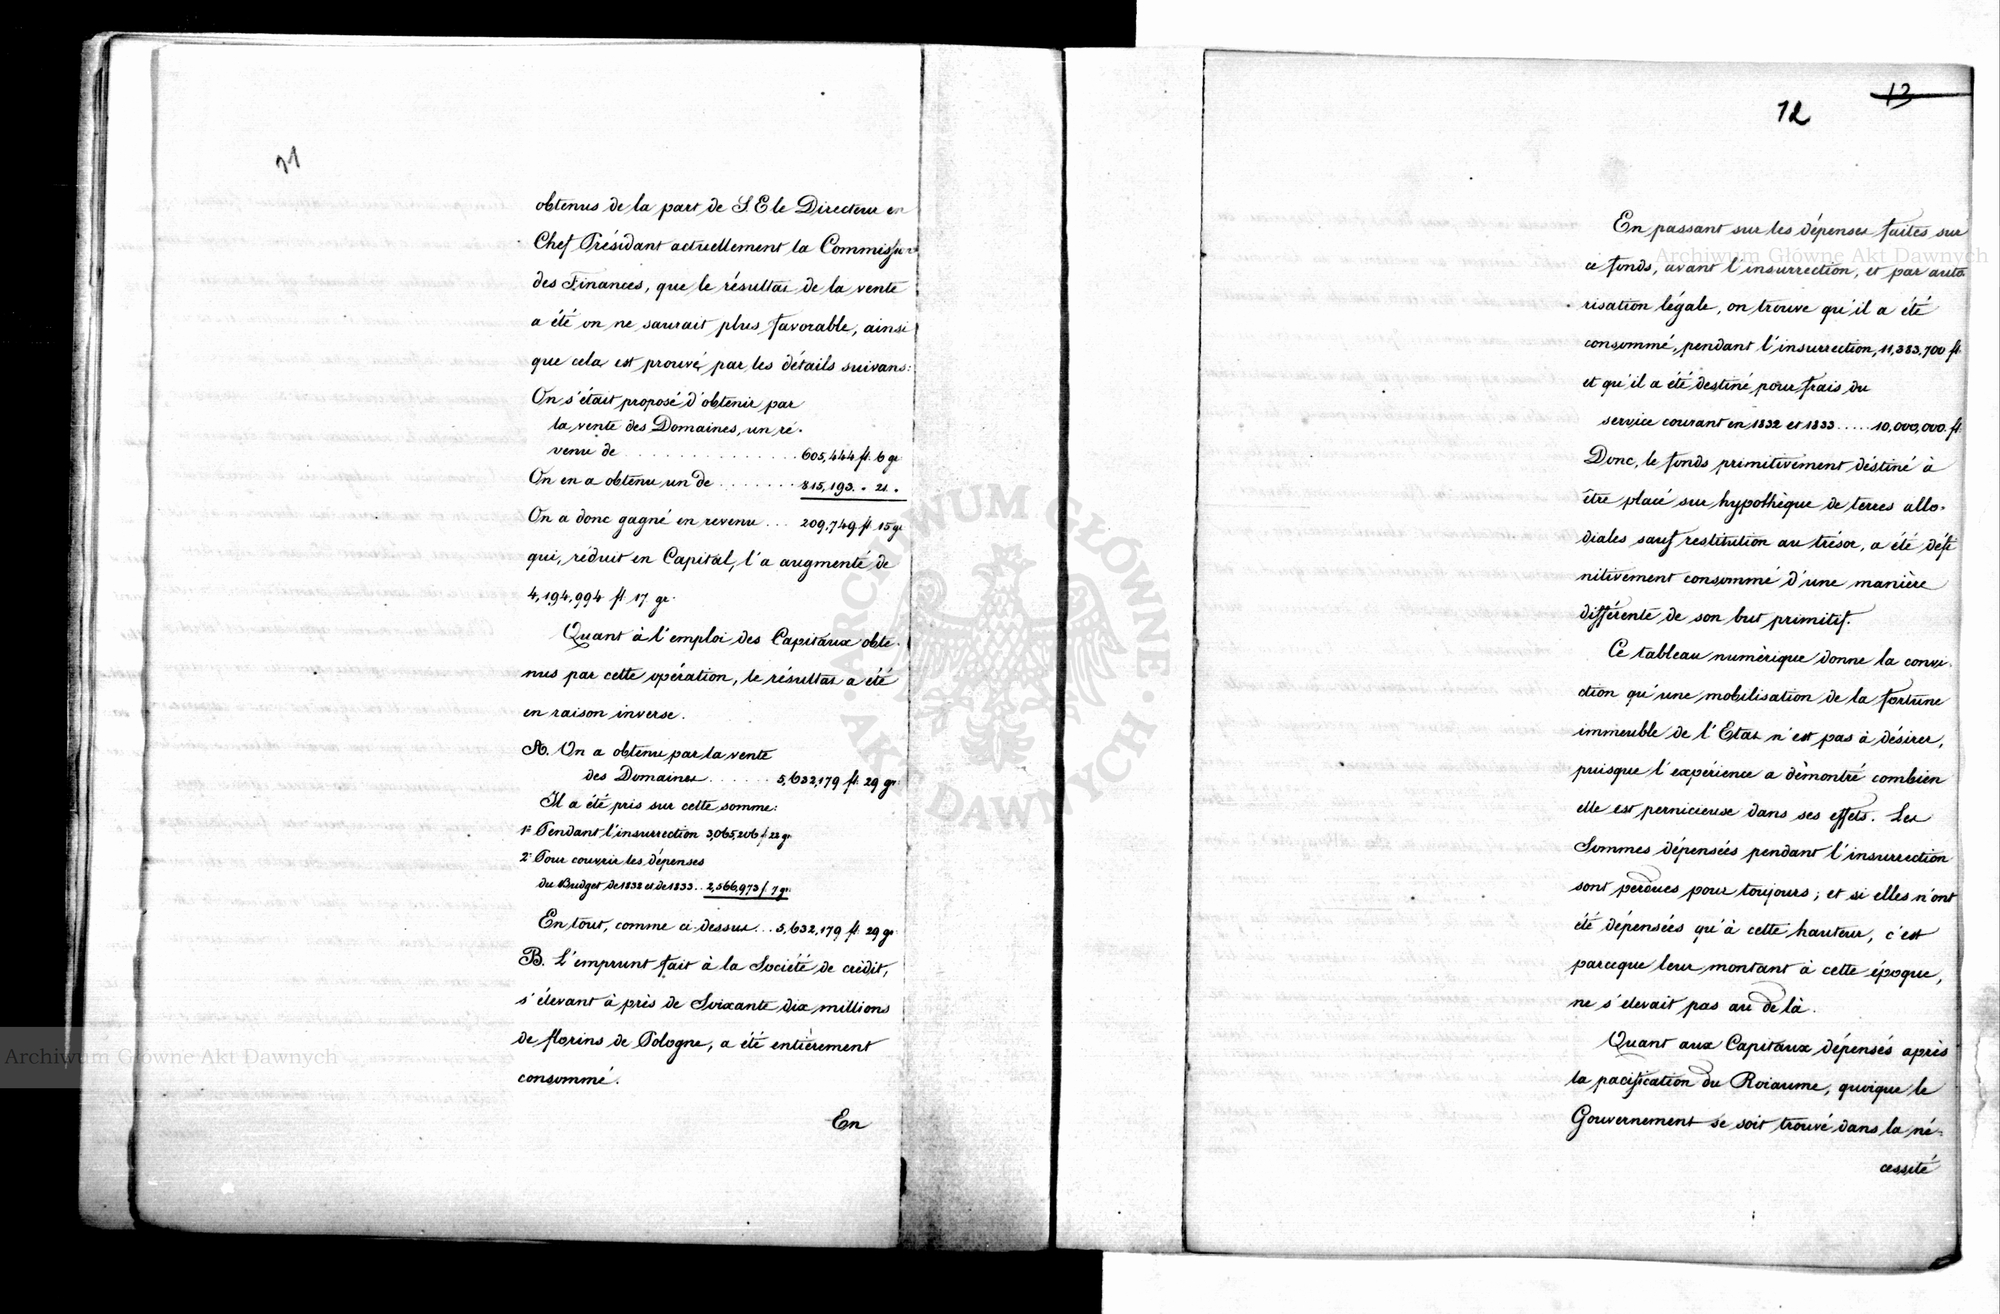 21
obtenus de la part de S. E le Directeur en
Chef Présidant actuellement la Commission
des Finances, que le résultat de la vente
a été on ne saurait plus favorable, ainsi
que cela est prouvé par les détails suivans:
On s'était proposé d'obtenir par
la vente des Domaines, un re-
venu de . . . . . . . . . . . . . . . 605,444 fl. 6 gr.
On en a obtenu un de . . . . . . . . 815,193. " 21. "
On a donc gagné en revenu . . . 209,749 fl. 15 gr.
qui, réduit en Capital, l'a augmenté de
4,194,994 fl. 17. gr.
Quant à l'emploi des Capitaux obte-
nus par cette opération, le résultat a été
en raison inverse.
A. On a obtenu par la vente
des Domaines . . . . . . . 5,632,179 fl. 29 gr.
Il a été pris sur cette somme:
1° Pendant l'insurrection 3,065,206 f 22 gr.
2° Pour couvrir les dépenses
du Budget de 1832 et de 1833 . . 2,566,973 f 7 gr.
En tout, comme ci dessus . . . 5,632,179 fl. 29 gr.
B. L'emprunt fait à la Société de crédit,
s'élevant à près de Soixante dix millions
de florins de Pologne, a été entièrement
consommé.
En
13
12
En passant sur les dépenses faites sur
ce fonds, avant l'insurrection, et par auto
risation légale, on trouve qu'il a été
consommé, pendant l'insurrection, 11,383,700 fl.
et qu'il a été destiné pour frais du
service courant en 1832 et 1833 . . . . . 10,000,000. fl.
Donc, le fonds primitivement déstiné à
être placé sur hypothèque de terres allo-
diales sauf restitution au trésor, a été défi
nitivement consommé d'une manière
différente de son but primitif.
Ce tableau numèrique donne la convi-
ction qu'une mobilisation de la fortune
immeuble de l'Etat n'est pas à désirer,
puisque l'expérience a démontré combien
elle est pernicieuse dans ses effets. Les
Sommes dépensées pendant l'insurrection
sont perdues pour toujours; et si elles n'ont
été dépensées qu'à cette hauteur, c'est
parceque leur montant à cette époque,
ne s'elevait pas au de là.
Quant aux Capitaux dépensés après
la pacification du Roiaume, quoique le
Gouvernement se soit trouvé dans la né-
cessité
Archiwum Główne Akt Dawnych
Archiwum Główne Akt Dawnych
ARCHIWUM GŁÓWNE
AKT DAWNYCH